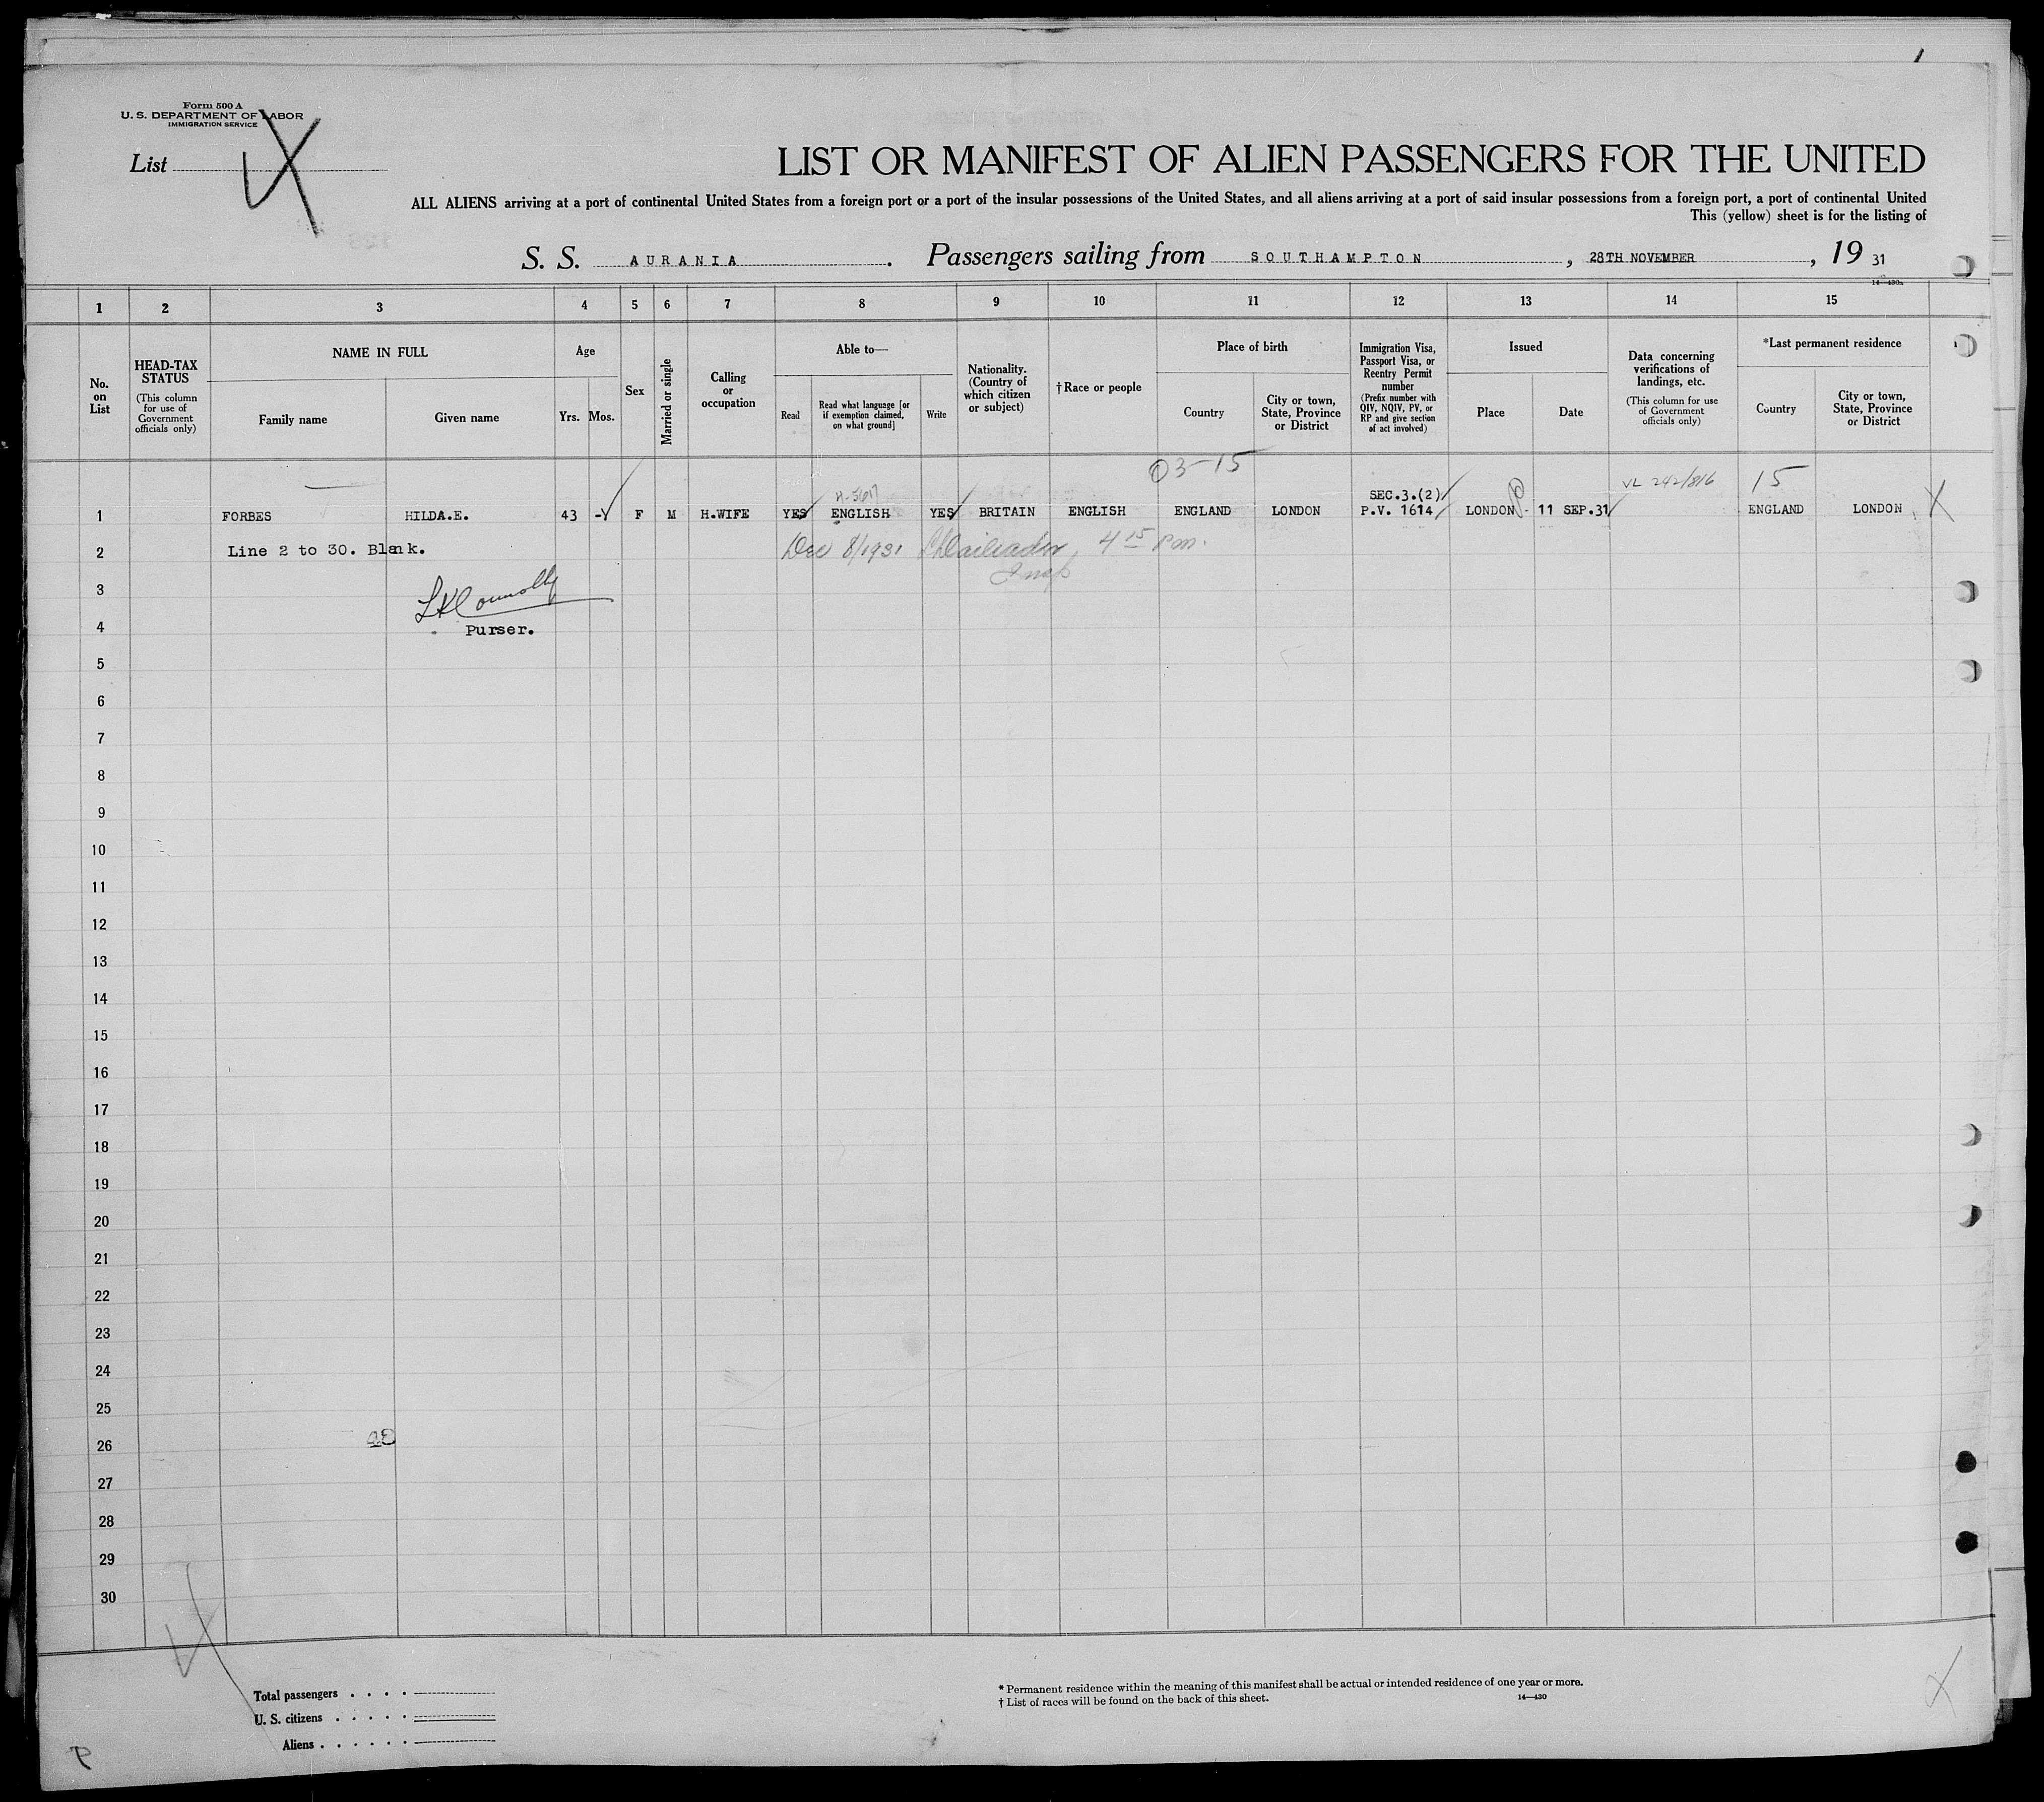 1
Form 500 A
U. S. DEPARTMENT OF LABOR
IMMIGRATION SERVICE
List
LIST OR MANIFEST OF ALIEN PASSENGERS FOR THE UNITED
ALL ALIENS arriving at a port of continental United States from a foreign port or a port of the insular possessions of the United States, and all aliens arriving at a port of said insular possessions from a foreign port, a port of continental United
This (yellow) sheet is for the listing of
S. S. AURANIA . Passengers sailing from SOUTHAMPTON , 28TH NOVEMBER , 19 31
14—430a
1 2 3 4 5 6 7 8 9 10 11 12 13 14 15
No. on List
HEAD-TAX STATUS (This column for use of Government officials only)
NAME IN FULL
Family name
Given name
Age
Yrs.
Mos.
Sex
Married or single
Calling or occupation
Able to—
Read
Read what language [or if exemption claimed, on what ground]
Write
Nationality. (Country of which citizen or subject)
† Race or people
Place of birth
Country
City or town, State, Province or District
Immigration Visa, Passport Visa, or Reentry Permit number (Prefix number with QIV, NQIV, PV, or RP and give section of act involved)
Issued
Place
Date
Data concerning verifications of landings, etc. (This column for use of Government officials only)
*Last permanent residence
Country
City or town, State, Province or District
03-15
VL 242/816
15
SEC.3.(2)
1 FORBES HILDA.E. 43 - F M H.WIFE YES ENGLISH YES BRITAIN ENGLISH ENGLAND LONDON P.V. 1614 LONDON - 11 SEP.31 ENGLAND LONDON. X
2 Line 2 to 30. Blank. Dec 8/1931 4 15 P.m.
Insp
3 Connolly
4 Purser.
5
6
7
8
9
10
11
12
13
14
15
16
17
18
19
20
21
22
23
24
25
26
27
28
29
30
Total passengers . . . .
U. S. citizens . . . . .
Aliens . . . . . .
* Permanent residence within the meaning of this manifest shall be actual or intended residence of one year or more.
† List of races will be found on the back of this sheet.
14—430